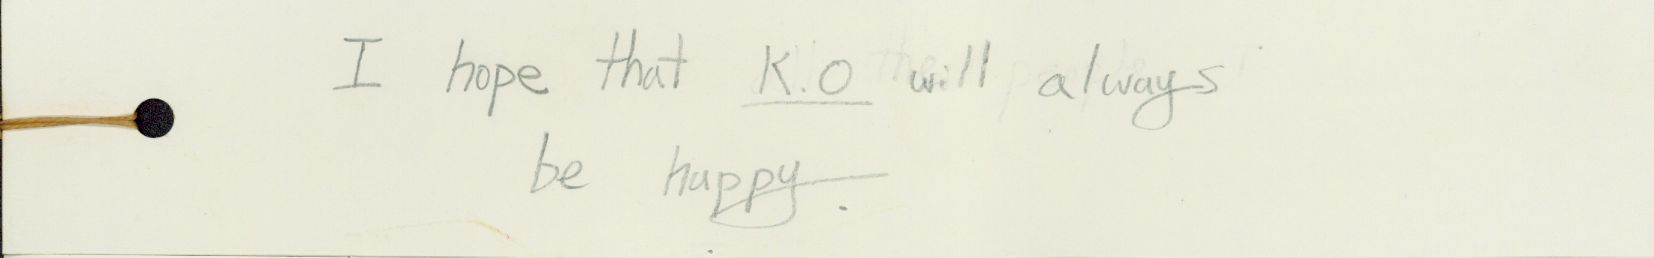 I hope that K.O will always
be happy.